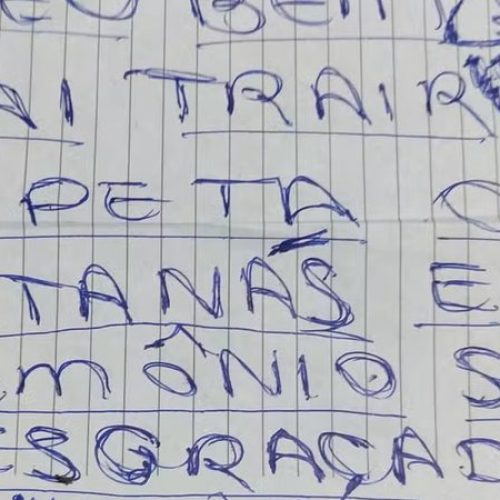 BEM
AI TRAIR
PETA O
TANÁS E
MÔNIO S
ESGRAÇAD